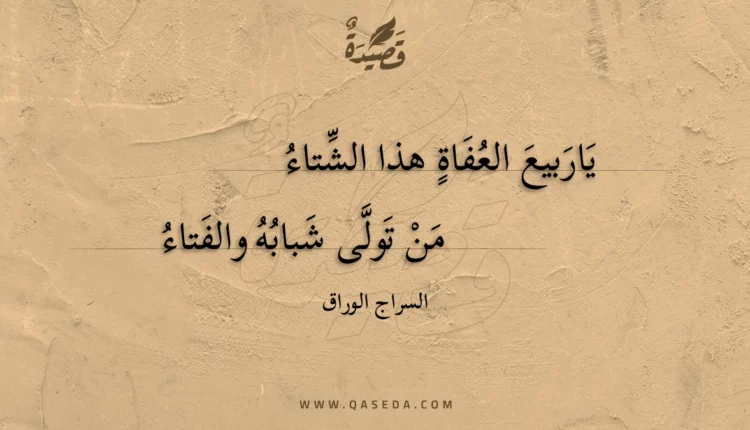 قَصِيْدَةٌ
يَارَبيعَ العُفَاةٍ هذا الشِّتاءُ
مَنْ تَولَّى شَبابُهُ والفَتاءُ
السراج الوراق
WWW.QASEDA.COM